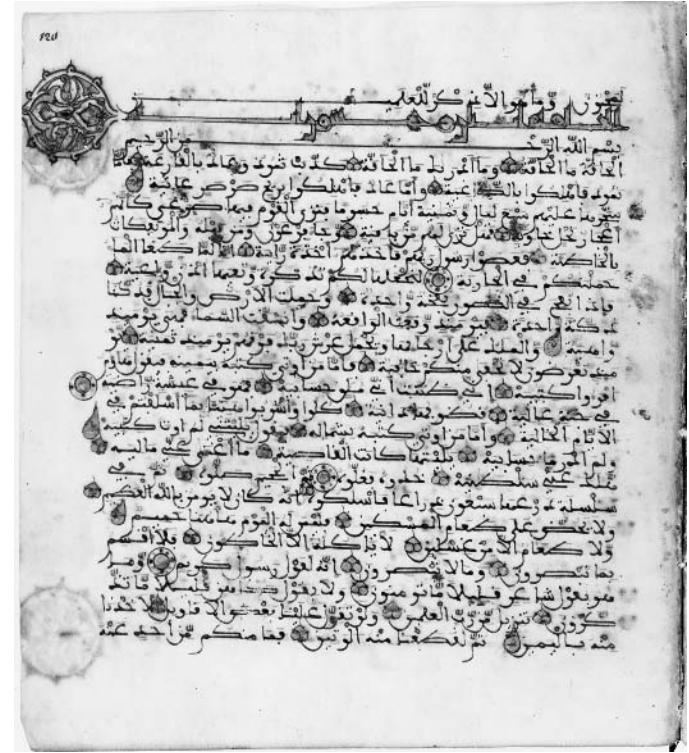 لمجنون وما هو الا ذكر للعلمين
بسم الله الرحمن الرحيم
الحاقة ما الحاقة وما ادريك ما الحاقة كذبت ثمود وعاد بالقارعة فاما
ثمود فاهلكوا بالطاغية واما عاد فاهلكوا بريح صرصر عاتية
سخرها عليهم سبع ليال وثمنية ايام حسوما فترى القوم فيها صرعى كانهم
اعجاز نخل خاوية فهل ترى لهم من باقية وجا فرعون ومن قبله والموتفكات
بالخاطئة فعصوا رسول ربهم فاخذهم اخذة رابية انا لما طغا الما
حملنكم في الجارية لنجعلها لكم تذكرة وتعيها اذن وعية
فاذا نفخ في الصور نفخة واحدة وحملت الارض والجبال فدكتا
دكة واحدة فيوميذ وقعت الواقعة وانشقت السماء فهي يوميذ
واهية والملك على ارجائها ويحمل عرش ربك فوقهم يوميذ ثمنية يو
ميذ تعرضون لا تخفى منكم خافية فاما من اوتي كتبه بيمينه فيقول هاوم
اقروا كتبيه اني ظننت اني ملق حسابيه فهو في عيشة راضية
في جنة عالية قطوفها دانية كلوا واشربوا هنيئا بما اسلفتم في
الايام الخالية واما من اوتي كتبه بشماله فيقول يليتني لم اوت كتبيه
ولم ادر ما حسابيه يليتها كانت القاضية ما اغنى عني ماليه
هلك عني سلطنيه خذوه فغلوه ثم الجحيم صلوه ثم في
سلسلة ذرعها سبعون ذراعا فاسلكوه انه كان لا يومن بالله العظيم
ولا يحض على طعام المسكين فليس له اليوم ههنا حميم
ولا طعام الا من غسلين لا ياكله الا الخاطون فلا اقسم
بما تبصرون وما لا تبصرون انه لقول رسول كريم وما
هو بقول شاعر قليلا ما تومنون ولا بقول كاهن قليلا ما تذ
كرون تنزيل من رب العلمين ولو تقول علينا بعض الاقاويل لاخذنا
منه باليمين ثم لقطعنا منه الوتين فما منكم من احد عنه